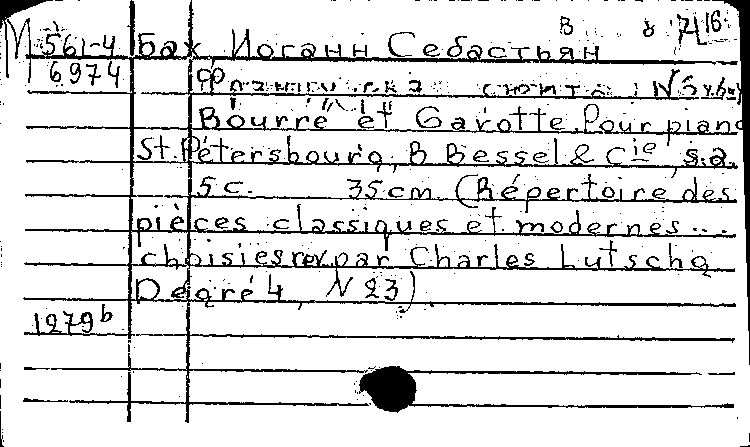 М 561-4 Бах Иоганн Себастьян
6974 Французская сюита N5
Bourré et Gavotte. Pour piano
St. Pétersbourg, B Bessel & Cie, s.a.
5 c. 35cm (Répertoire des
pièces classiques et modernes...
choisies rev. par Charles Lutschg
Degré 4, N 23).
1279b